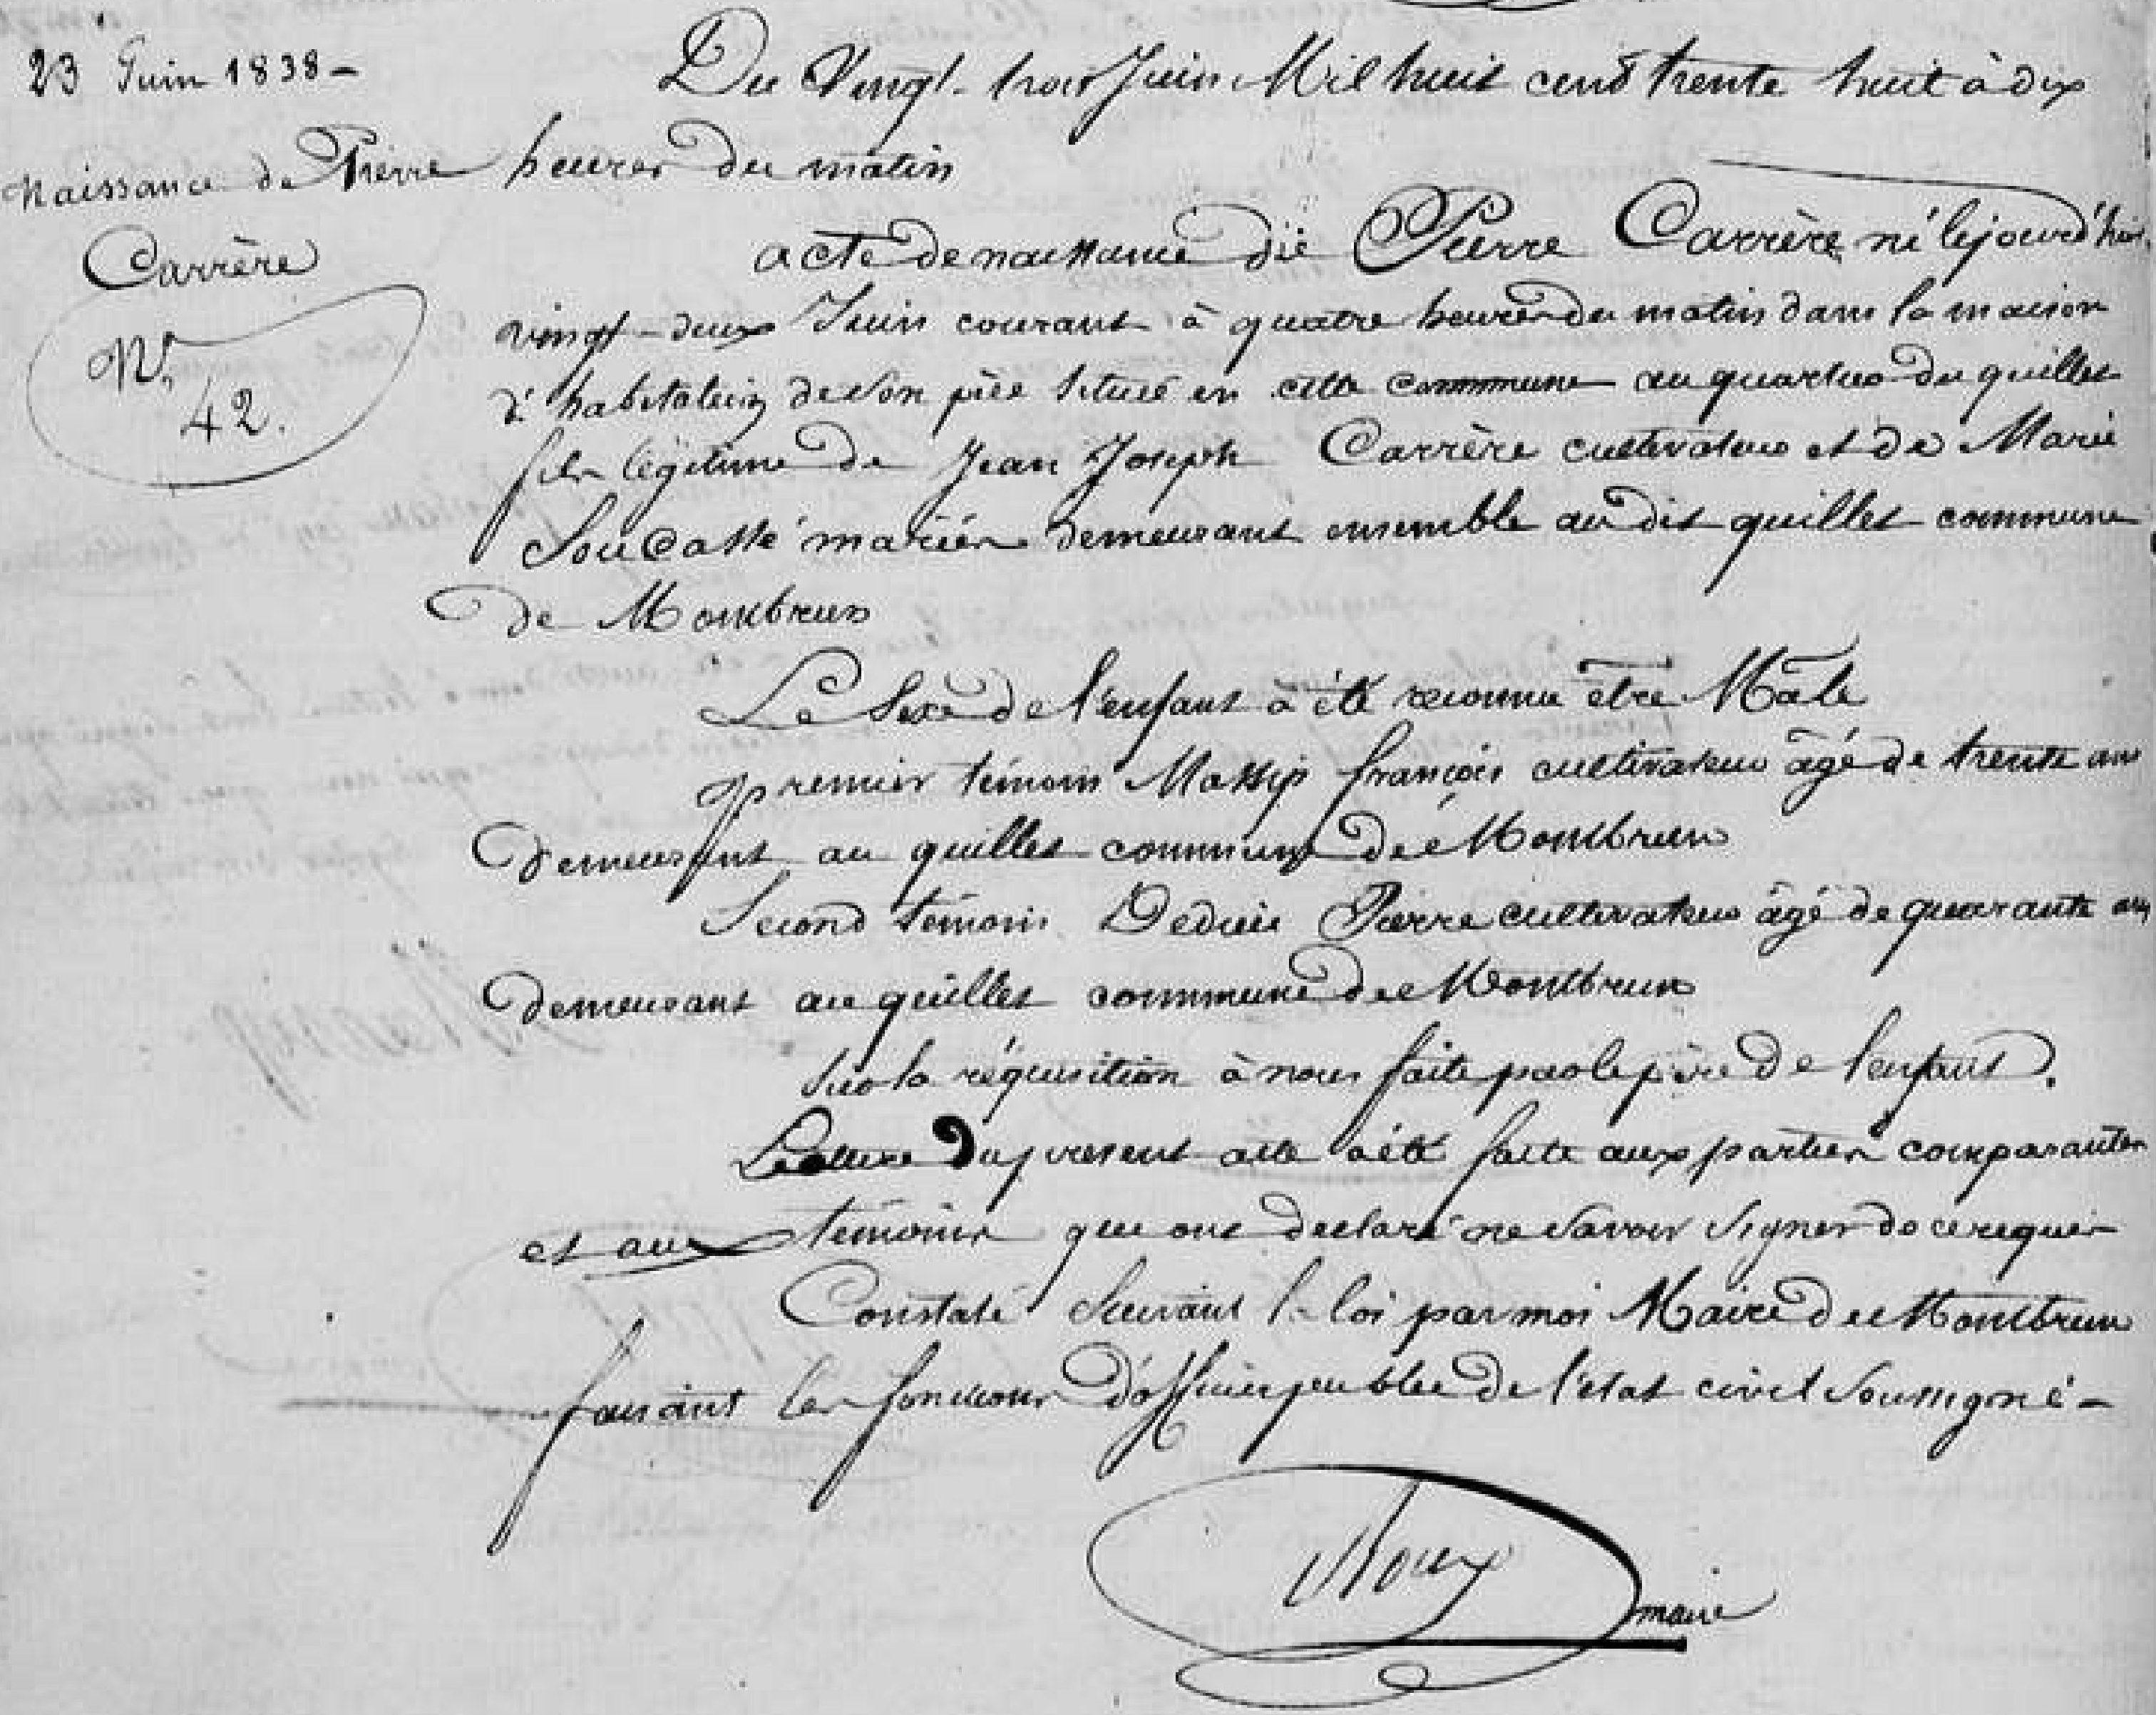 23 Juin 1838 -
Naissance de Pierre
Carrère
N°
42.
Du Vingt-trois Juin Mil huit cent trente huit à dix
heures du matin
acte de naissance de Pierre Carrère né lejourd'hui
vingt-deux Juin courant à quatre heures du matin dans la maison
d'habitation de son père située en cette commune au quartier du quillet
fils légitime de Jean Joseph Carrère cultivateur et de Marie
Soucassé mariés demeurant ensemble au dit quillet commune
de Montbrun
Le Sexe de l'enfant à été reconnu être Mâle
premier témoin Massip françois cultivateur âgé de trente ans
demeurant au quillet commune de Montbrun
Second témoin Dedieu Pierre cultivateur âgé de quarante ans
demeurant au quillet commune de Montbrun
Sur la réquisition à nous faite par le père de l'enfant.
Lecture du present acte a été faite aux parties comparantes
et aux témoins qui ont declaré ne savoir signer de ce requis
Constaté Suivant la loi par moi Maire de Montbrun
faisant les fonctions d'officier public de l'état civil soussigné -
Roux
maire